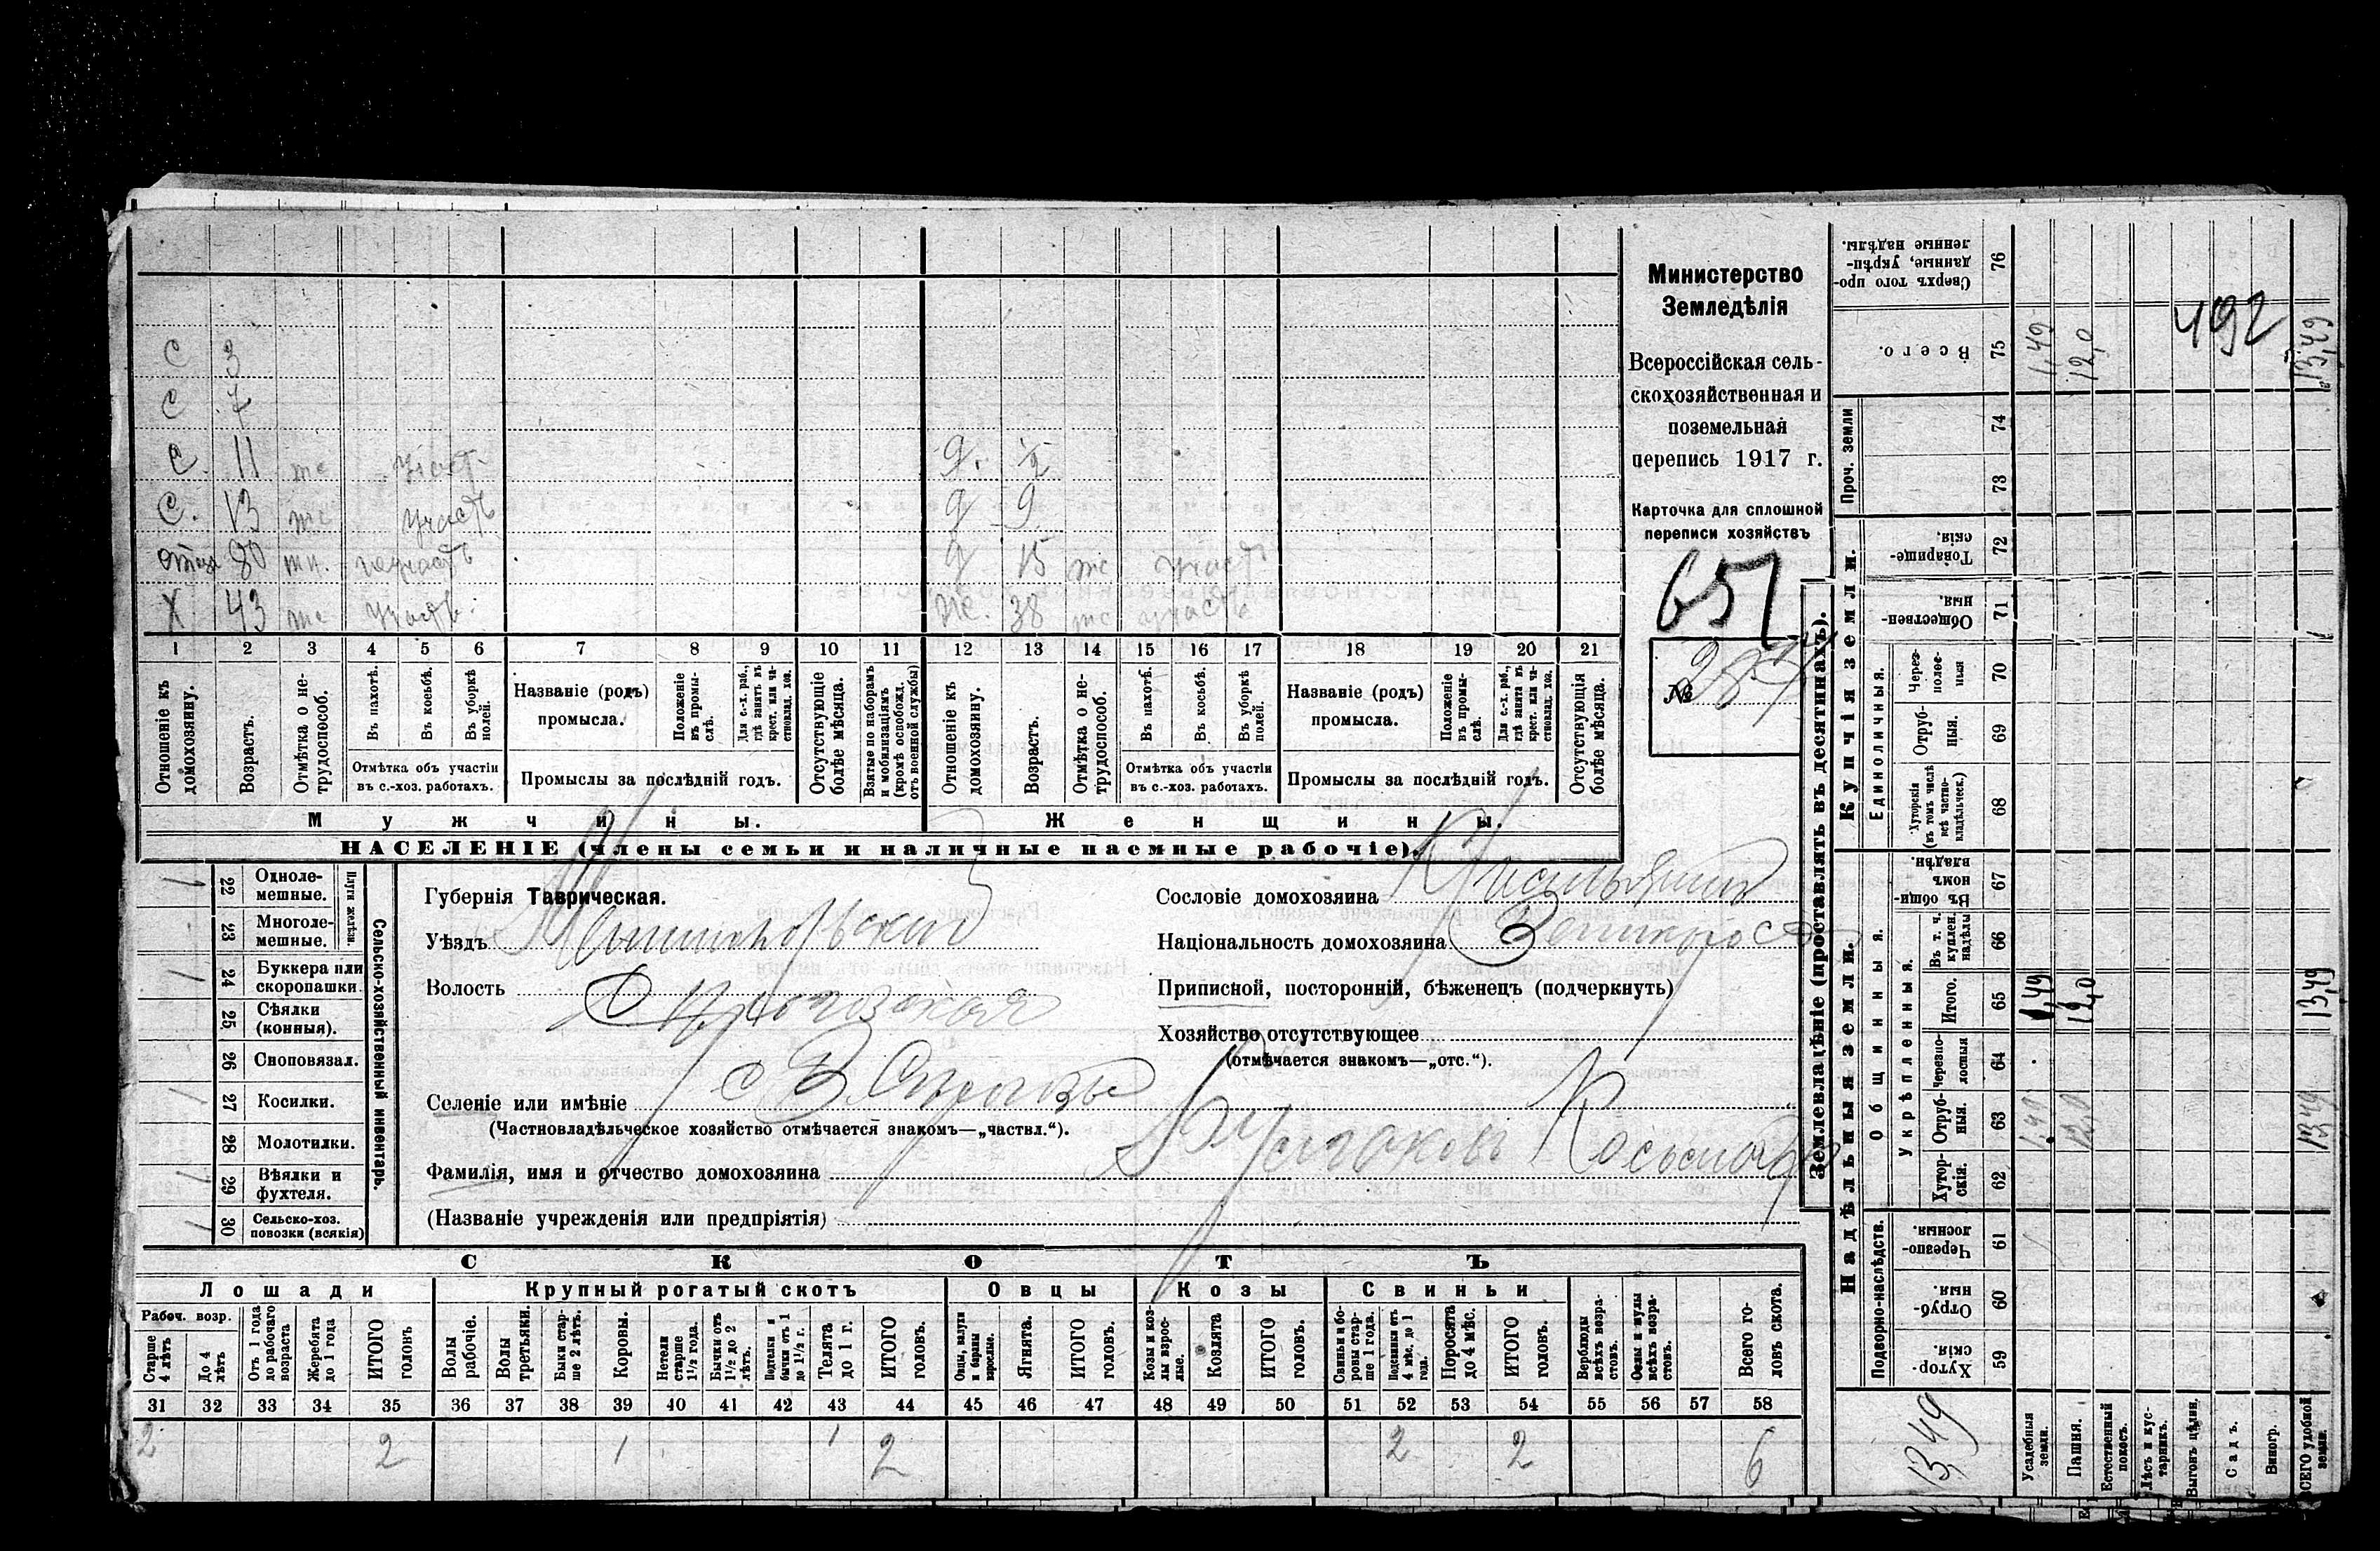 Министерство
Земледѣлія
Всероссійская сель-
скохозяйственная и
поземельная
перепись 1917 г.
Карточка для сплошной
переписи хозяйствъ
651
№
С 3
С 7
С. 11 Участ.
С. 13 Участв
80
Х 43 Участв.
9
15 Участ
38 Участв
1 2 3 4 5 6 7 8 9 10 11 12 13 14 15 16 17 18 19 20 21
Отношеніе къ домохозяину.
Возрастъ.
Отмѣтка о не-трудоспособ.
Въ пахотѣ.
Въ косьбѣ.
Въ уборкѣ полей.
Отмѣтка объ участіи
въ с.-хоз. работахъ.
Названіе (родъ)
промысла.
Положеніе въ промы-слѣ.
Для с.-х. раб., гдѣ занятъ въ крест. или ча-стновлад. хоз.
Промыслы за послѣдній годъ.
Отсутствующіе болѣе мѣсяца.
Взятые по наборамъ и мобилизаціямъ (кромѣ освобожд. отъ военной службы)
Отношеніе къ домохозяину.
Возрастъ.
Отмѣтка о не-трудоспособ.
Въ пахотѣ.
Въ косьбѣ.
Въ уборкѣ полей.
Отмѣтка объ участіи
въ с.-хоз. работахъ.
Названіе (родъ)
промысла.
Положеніе въ промы-слѣ.
Для с.-х. раб., гдѣ занята въ крест. или ча-стновлад. хоз.
Промыслы за послѣдній годъ.
Отсутствующія болѣе мѣсяца.
Мужчины.
Женщины.
НАСЕЛЕНІЕ (члены семьи и наличные наемные рабочіе).
22 Одноле-мешные. 1
23 Многоле-мешные.
Плуги желѣзн.
24 Буккера или скоропашки. 1
25 Сѣялки (конныя).
26 Сноповязал.
27 Косилки. 1
28 Молотилки.
29 Вѣялки и фухтеля. 1
30 Сельско-хоз. повозки (всякія) 1
Сельско-хозяйственный инвентарь.
Губернія Таврическая.
Уѣздъ Мелитопольскій
Волость
Селеніе или имѣніе
(Частновладѣльческое хозяйство отмѣчается знакомъ—„частвл.“).
Фамилія, имя и отчество домохозяина
(Названіе учрежденія или предпріятія)
Сословіе домохозяина Крестьянинъ
Національность домохозяина Великорос
Приписной, посторонній, бѣженецъ (подчеркнуть)
Хозяйство отсутствующее
(отмѣчается знакомъ—„отс.“).
СКОТЪ
Лошади
Крупный рогатый скотъ
Овцы
Козы
Свиньи
Рабоч. возр.
Старше 4 лѣтъ
До 4 лѣтъ
Отъ 1 года до рабочаго возраста
Жеребята до 1 года
ИТОГО головъ
Волы рабочіе.
Волы третьяки.
Быки стар-ше 2 лѣтъ.
Коровы.
Нетели старше 1½ года.
Бычки отъ 1½ до 2 лѣтъ.
Подтелки и бычки отъ 1 до 1½ г.
Телята до 1 г.
ИТОГО головъ.
Овцы, валухи и бараны взрослые.
Ягнята.
ИТОГО головъ.
Козы и коз-лы взрос-лые.
Козлята
ИТОГО головъ.
Свиньи и бо-ровы стар-ше 1 года.
Подсвинки отъ 4 мѣс. до 1 года.
Поросята до 4 мѣс.
ИТОГО головъ.
Верблюды всѣхъ возра-стовъ.
Ослы и мулы всѣхъ возра-стовъ.
Всего го-ловъ скота.
31 32 33 34 35 36 37 38 39 40 41 42 43 44 45 46 47 48 49 50 51 52 53 54 55 56 57 58
2 2 1 1 2 2 2 6
Землевладѣніе (проставлять въ десятинахъ).
Надѣльныя земли.
Купчія земли.
Проч. земли
Подворно-наслѣдств.
Общинныя.
Укрѣпленныя.
Единоличныя.
Хутор-скія. 59
Отруб-ныя. 60
Черезпо-лосныя 61
Хутор-скія. 62
Отруб-ныя. 63 1,49 12,0 13,49
Черезпо-лосныя 64
Итого. 65 1,49 12,0 13,49
Въ т. ч. куплен. надѣлы 66
Въ общин-номъ владѣн. 67
Хуторскія (въ томъ числѣ всѣ частно-владѣльческ.) 68
Отруб-ныя. 69
Через-полос-ныя 70
Обществен-ныя. 71
Товарище-скія. 72
73
74
Всего. 75 1,49 12,0 13,49
Сверхъ того про-данные, укрѣп-ленные надѣлы. 76
492
13,49
Усадебныя земли.
Пашня.
Естественный покосъ.
Лѣсъ и кус-тарникъ.
Выгонъ цѣлин.
Садъ.
Виногр.
ВСЕГО удобной земли.